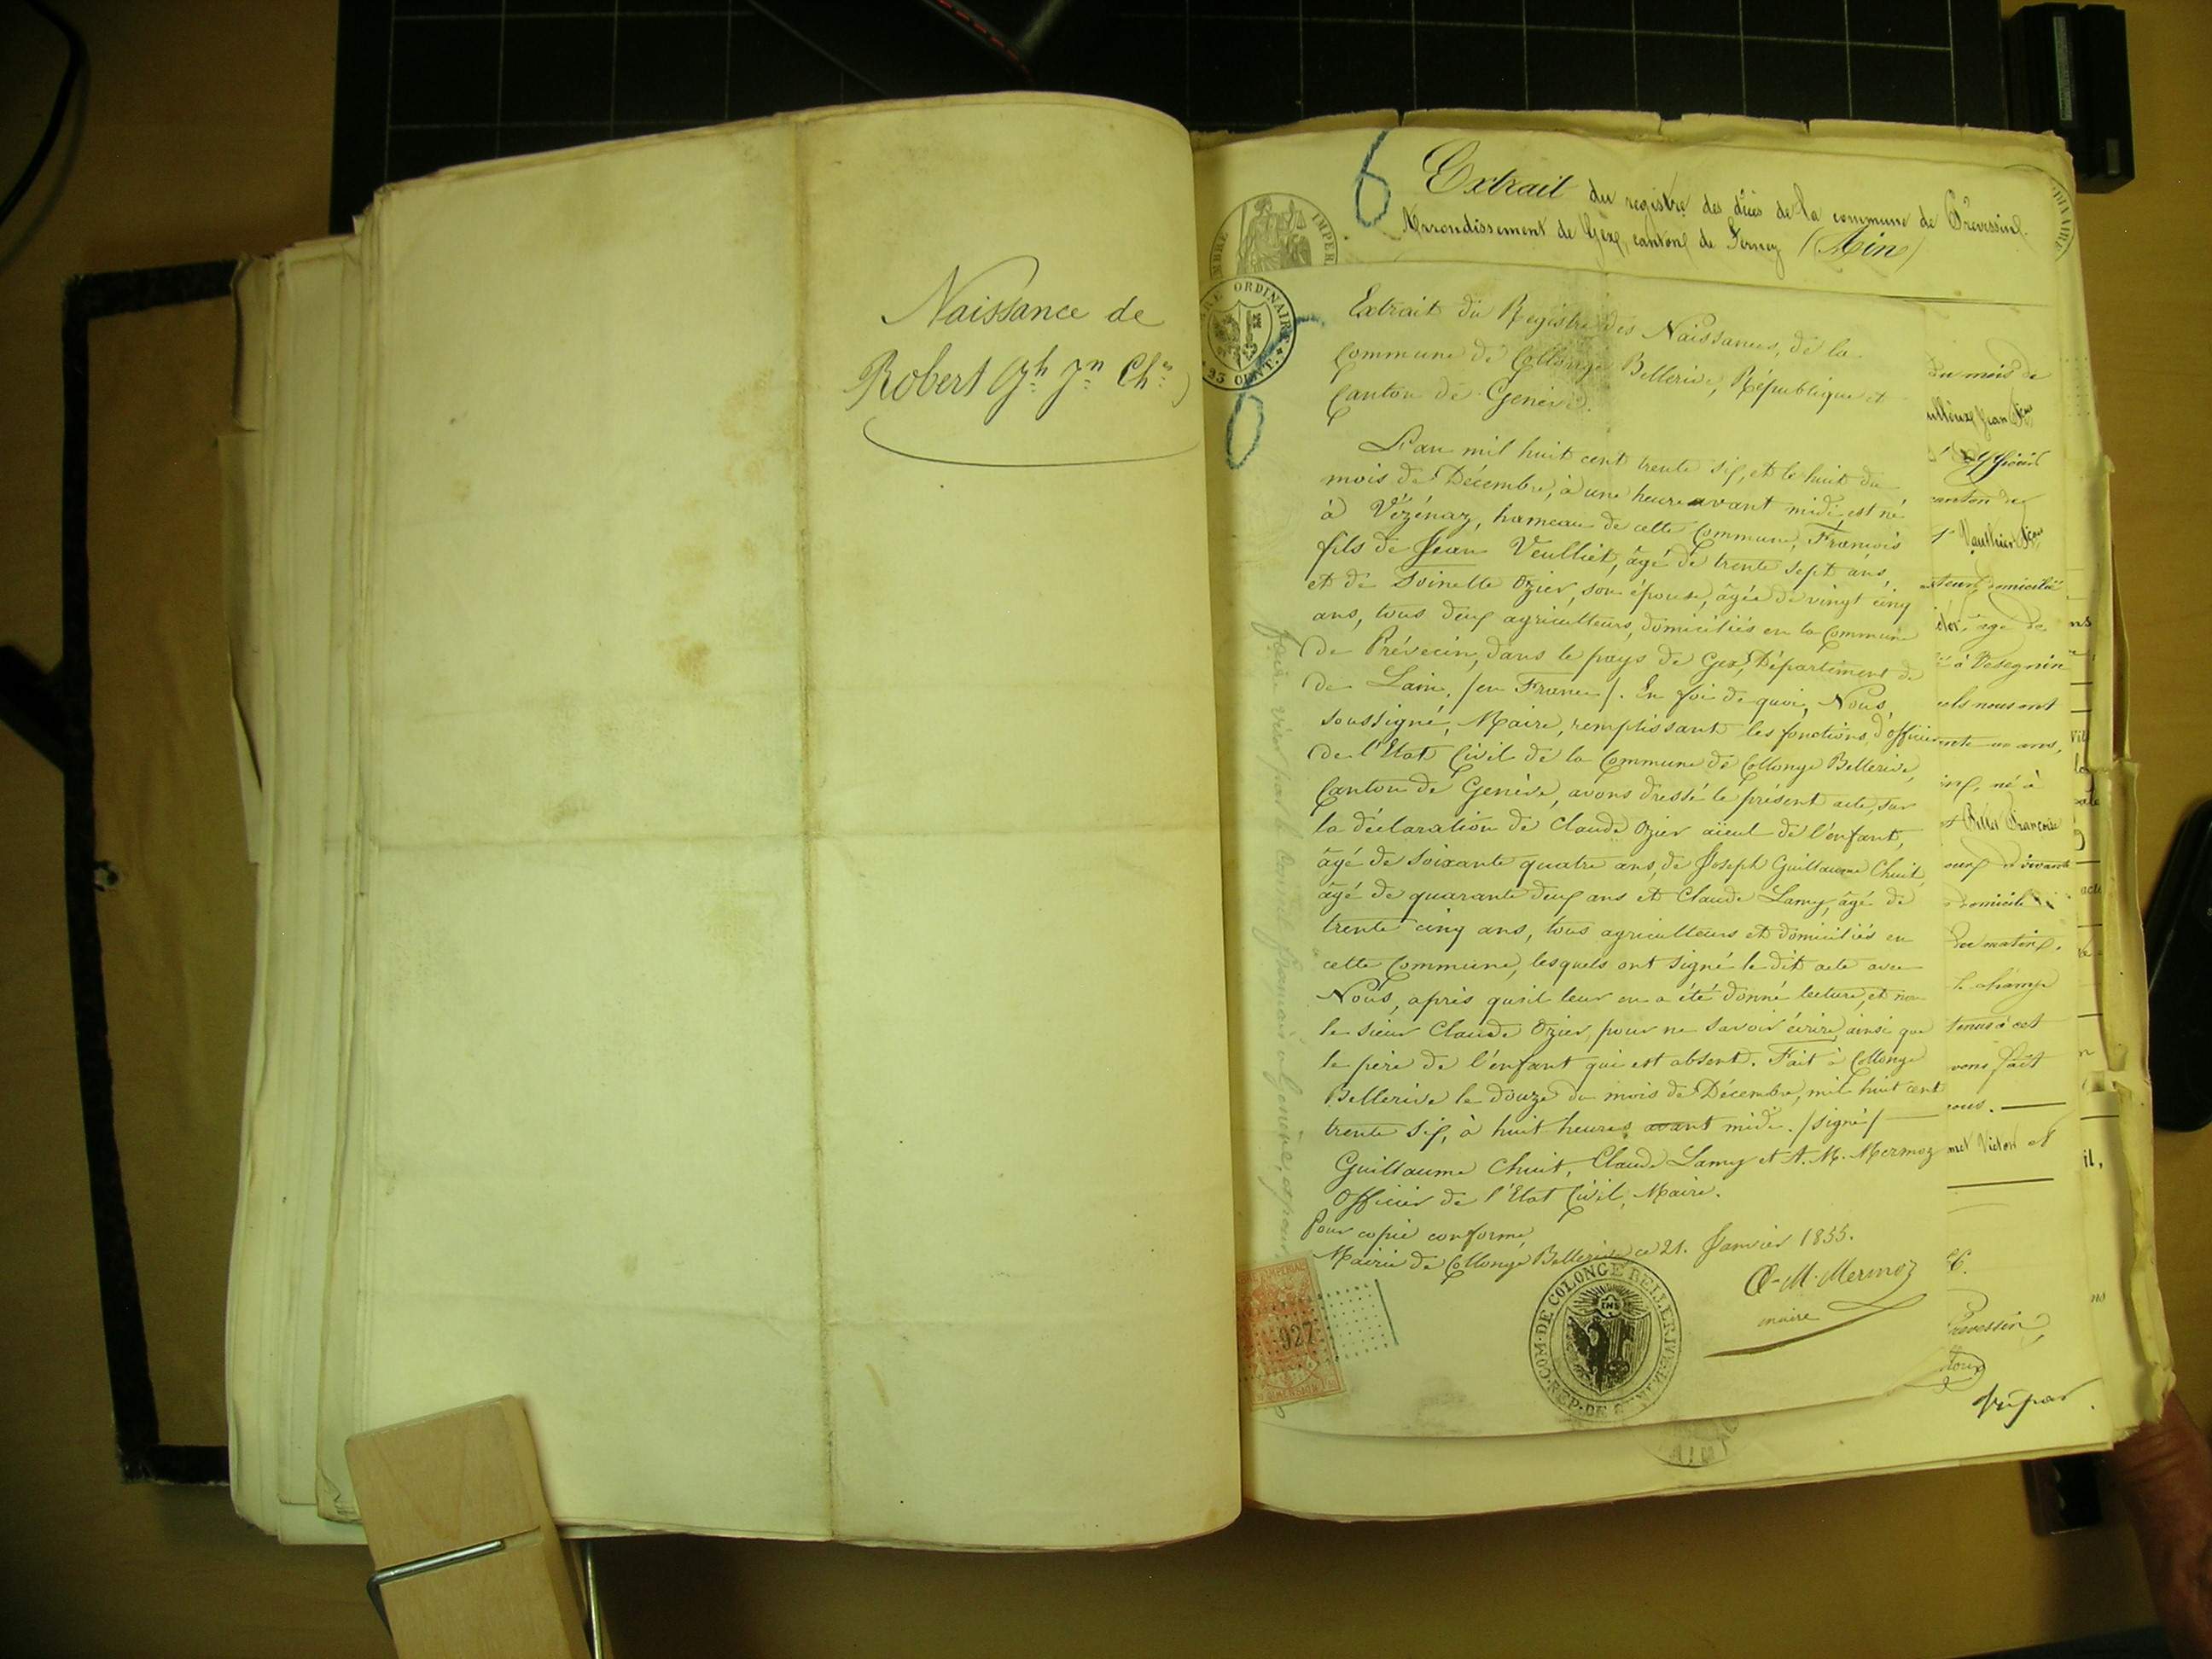 Naissance de
Robert Jh. Jn. Chs.
6
Extrait du registre des décès de la commune de Prevessin.
Arrondissement de Gex, canton de Ferney (Ain)
TIMBRE IMPER
ORDINAIRE
25 CENT.
Extrait du Registre des Naissances, de la
Commune de Collonge Bellerive, République et
Canton de Genève.
L'an mil huit cent trente six, et le huit du
mois de Décembre, à une heure avant midi, est né
à Vézénaz, hameau de cette Commune, François
fils de Jean Veulliet, âgé de trente sept ans,
et de Toinette Ozier, son épouse, âgée de vingt cinq
ans, tous deux agriculteurs, domiciliés en la Commune
de Prévecin, dans le pays de Gex, Département de
de Lain, /en France/. En foi de quoi, Nous,
soussigné, Maire, remplissant les fonctions d'officier
de l'Etat Civil de la Commune de Collonge Bellerive,
Canton de Genève, avons dressé le présent acte, sur
la déclaration de Claude Ozier aïeul de l'enfant,
âgé de soixante quatre ans, de Joseph Guillaume Chuit,
âgé de quarante deux ans et Claude Lamy, âgé de
trente cinq ans, tous agriculteurs et domiciliés en
cette Commune, lesquels ont signé le dit acte avec
Nous, après qu'il leur en a été donné lecture, et non
le sieur Claude Ozier, pour ne savoir écrire, ainsi que
le père de l'enfant qui est absent. Fait à Collonge
Bellerive le douze du mois de Décembre, mil huit cent
trente six, à huit heures avant midi. /signé/
Guillaume Chuit, Claude Lamy et A. M. Mermoz
Officier de l'Etat Civil, Maire.
Pour copie conforme,
Mairie de Collonge Bellerive ce 21. Janvier 1855.
A-M-Mermoz
maire
COM. DE COLONGE BELLERIVE
REP. DE GENEVE
927
du mois de
canton de
domicilié
âgé de
à Vesegnin
nous ont
ans,
né à
domicile
du matin
le champ
tenus à cet
avons fait
nous.
Victor et
Prevessin,
Vu par